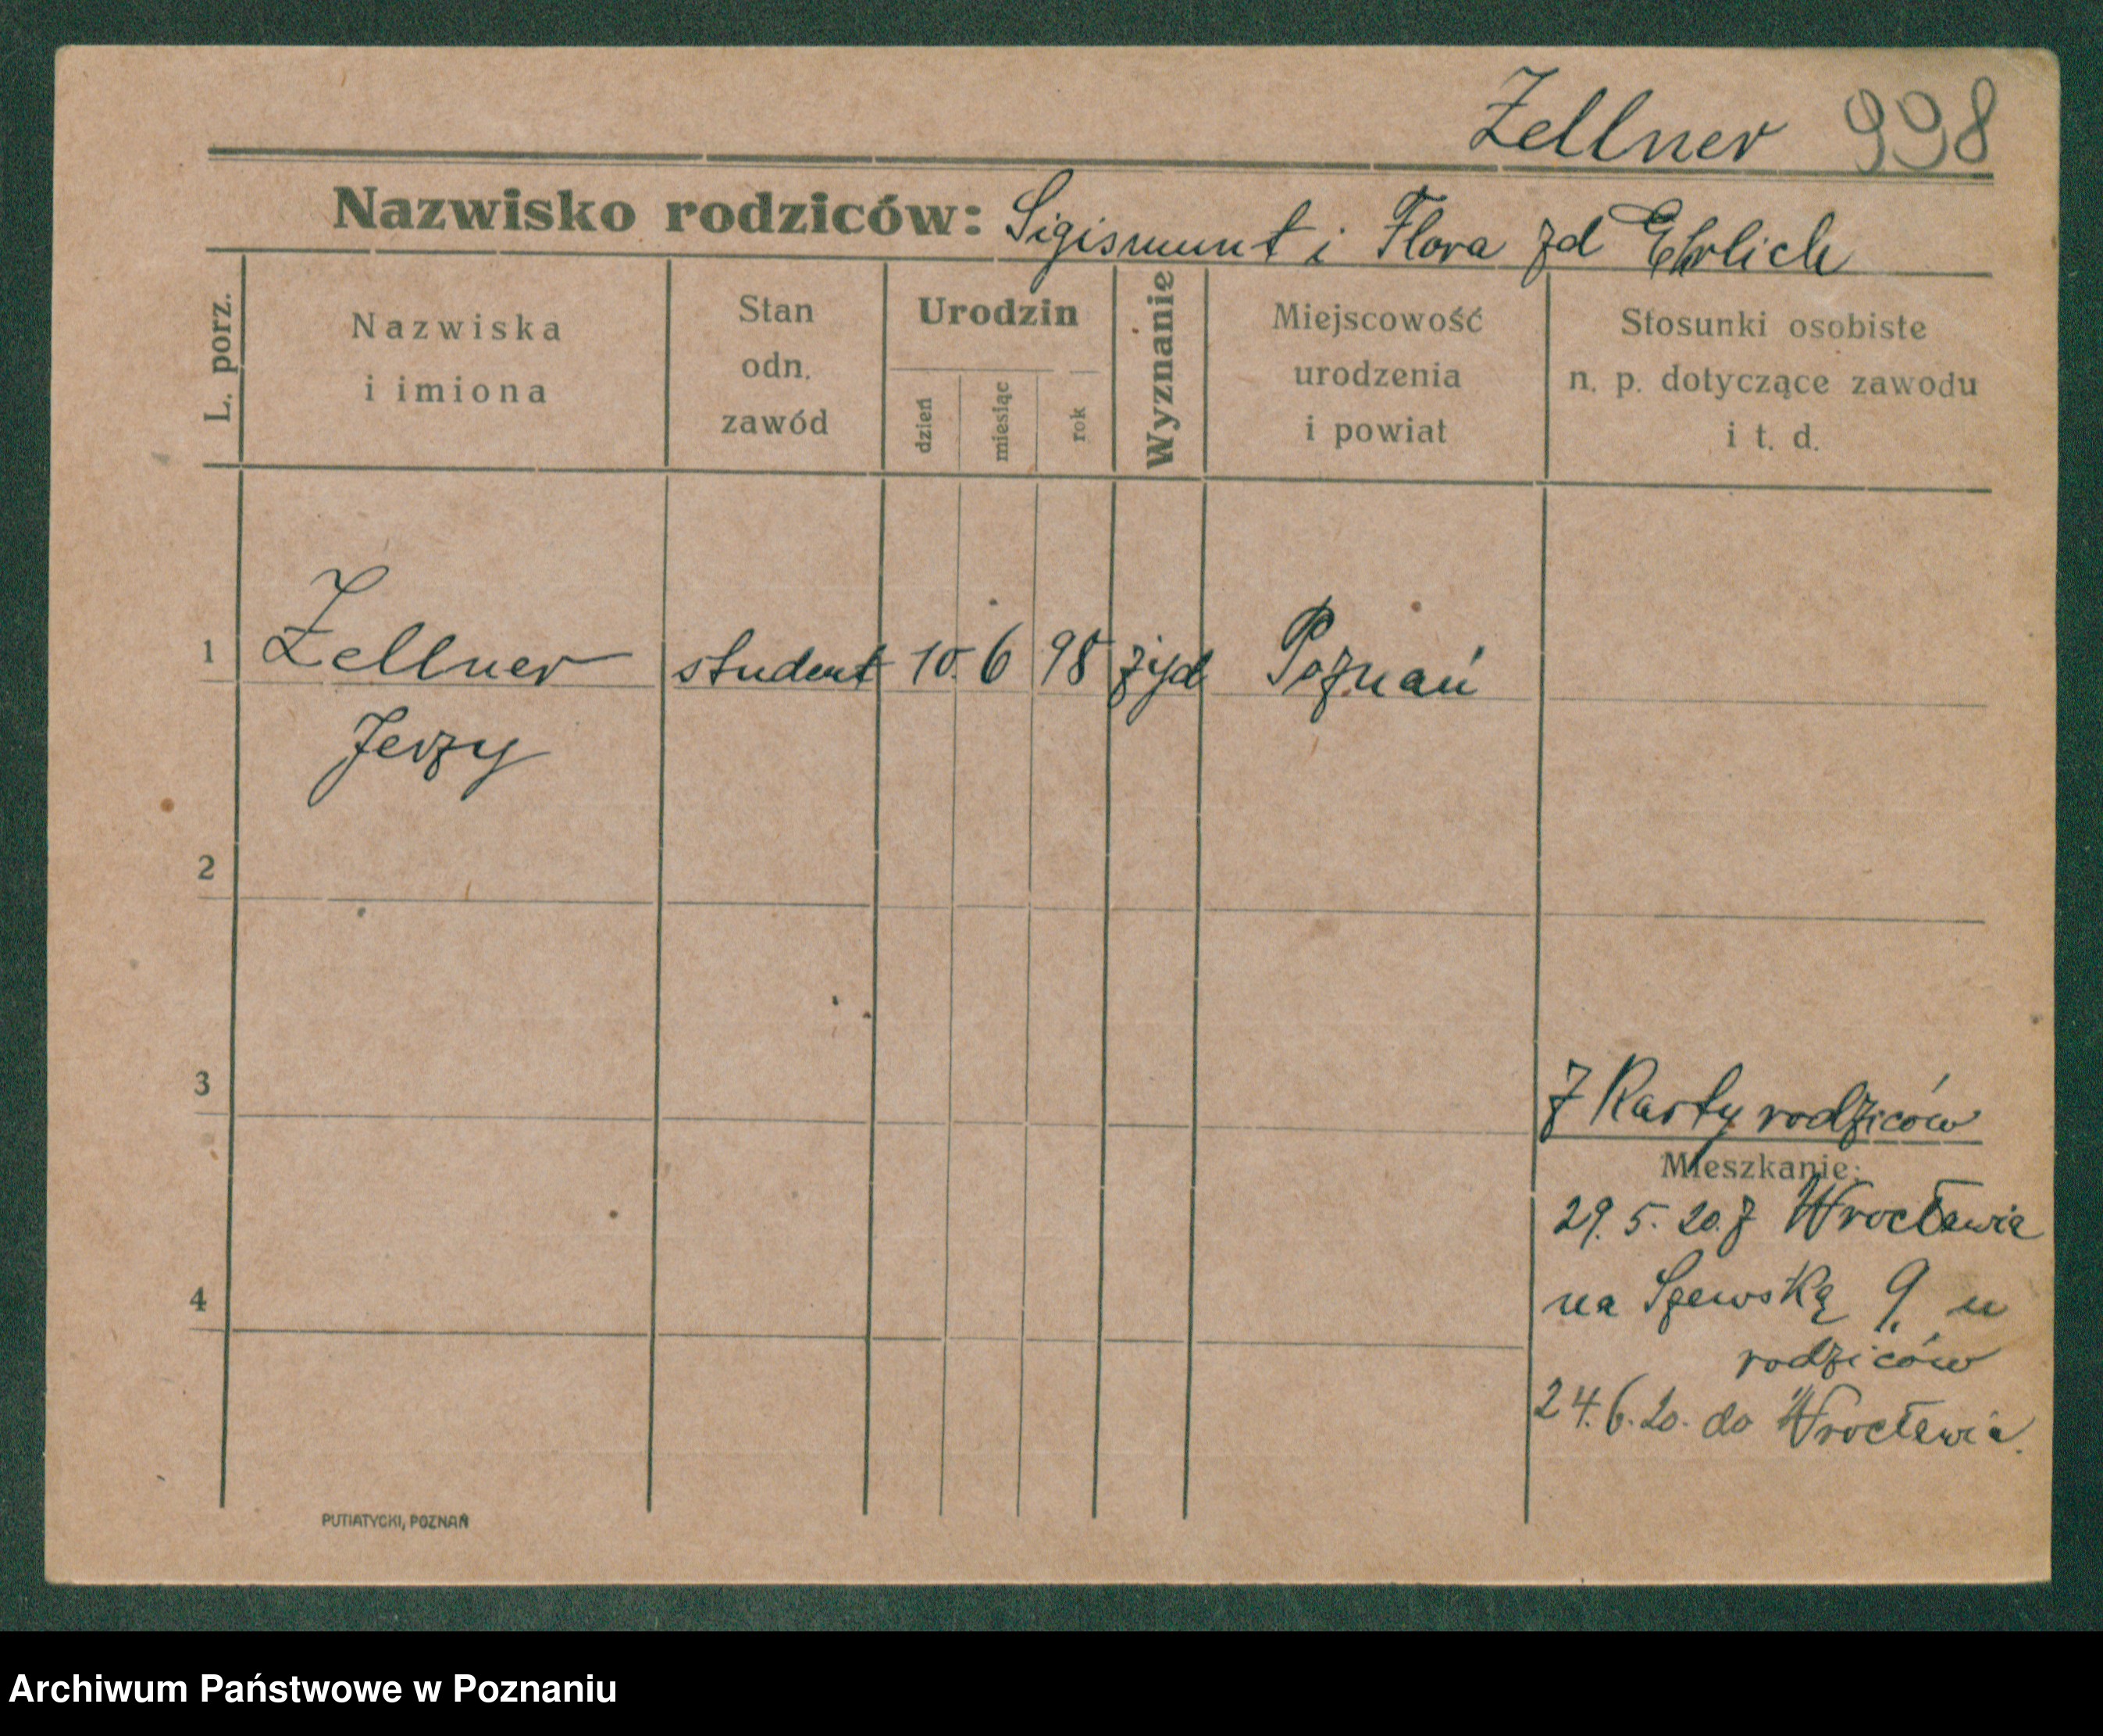 Zellner 998
Nazwisko rodziców: Sigismunt i Flora zd Ehrlich
L. porz.
Nazwiska
i imiona
Stan
odn.
zawód
Urodzin
dzień
miesiąc
rok
Wyznanie
Miejscowość
urodzenia
i powiat
Stosunki osobiste
n. p. dotyczące zawodu
i t. d.
1 Zellner student 10. 6 98 żyd Poznań
Jerzy
2
3
Z Karty rodziców
Mieszkanie:
29. 5. 20. z Wrocławia
na Szewską 9. u
rodziców
4
24. 6. 20. do Wrocławia.
PUTIATYCKI, POZNAŃ
Archiwum Państwowe w Poznaniu